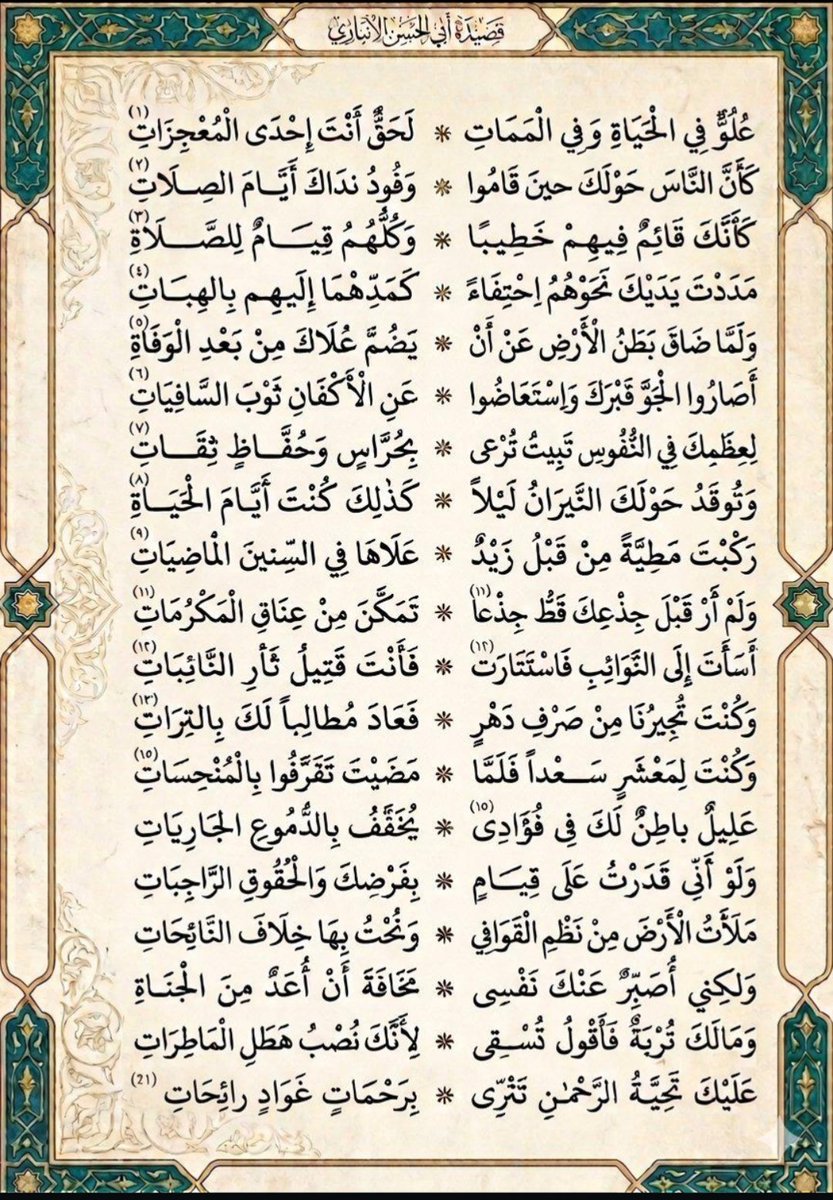 قَصِيْدَة أَبِي الحَسَنِ الأنْبَارِي
عُلُوٌّ فِي الْحَيَاةِ وَفِي الْمَمَاتِ * لَحَقٌّ أَنْتَ إِحْدَى الْمُعْجِزَاتِ (١)
كَأَنَّ النَّاسَ حَوْلَكَ حينَ قَامُوا * وَفُودُ نداكَ أَيَّامَ الصِلَاتِ (٢)
كَأَنَّكَ قَائِمٌ فِيهِمْ خَطِيبًا * وَكُلُّهُمُ قِيَامٌ لِلصَّلَاةِ (٣)
مَدَدْتَ يَدَيْكَ نَحَوْهُمُ اِحْتِفَاءً * كَمَدِّهْمَا إِلَيهِم بِالهِبَاتِ (٤)
وَلَمَّا ضَاقَ بَطَنُ الْأَرْضِ عَنْ أَنْ * يَضُمَّ عُلَاكَ مِنْ بَعْدِ الْوَفَاةِ (٥)
أَصَارُوا الْجَوَّ قَبْرَكَ وَاِسْتَعَاضُوا * عَنِ الْأَكْفَانِ ثَوْبَ السَّافِيَاتِ (٦)
لِعِظَمِكَ فِي النُّفُوسِ تَبِيتُ تُرْعى * بِحُرَّاسٍ وَحُفَّاظٍ ثِقَاتِ (٧)
وَتُوقَدُ حَوْلَكَ النَّيرَانُ لَيْلاً * كَذٰلِكَ كُنْتَ أَيَّامَ الْحَيَاةِ (٨)
رَكْبْتَ مَطِيَّةً مِنْ قَبْلُ زَيْدٌ * عَلَاهَا فِي السِّنينَ الْمْاضِيَاتِ (٩)
وَلَمْ أَرْ قَبْلَ جِذْعِكَ قَطُّ جِذْعاً (١١) * تَمَكَّنَ مِنْ عِنَاقِ الْمَكْرُمَاتِ (١١)
أَسَأَتَ إِلَى النَّوَائِبِ فَاسْتَتَارَت (١٢) * فَأَنْتَ قَتِيلُ ثَأرِ النَّائِبَاتِ (١٢)
وَكُنْتَ تُجِيرُنَا مِنْ صَرْفِ دَهْرٍ * فَعَادَ مُطالِباً لَكَ بِالتِرَاتِ (١٣)
وَكُنْتَ لِمَعْشَرٍ سَعْداً فَلَمَّا * مَضَيْتَ تَقَرَّفُوا بِالْمُنْحِسَاتِ (١٥)
عَلِيلٌ باطِنٌ لَكَ فِى فُؤَادِى (١٥) * يُخَقَّفُ بِالدُّمُوعِ الجَارِيَاتِ
وَلَوْ أَنِّى قَدَرْتُ عَلَى قِيَامٍ * بِفَرْضِكَ وَالْحُقُوقِ الرَّاجِبَاتِ
مَلَأَتُ الْأَرْضَ مِنْ نَظْمِ الْقَوَافِي * وَنُحْتُ بِهَا خِلَافَ النَّائِحَاتِ
وَلكِنِي أُصَبِّرُ عَنْكَ نَفْسِى * مَخَافَةَ أَنْ أُعَدَّ مِنَ الْجنَاةِ
وَمَالَكَ تُرْبَةٌ فَأَقْولُ تُسْقِى * لِأَنَّكَ نُصْبُ هَطَلِ الْمَاطِرَاتِ
عَلَيْكَ تَحِيَّةُ الرَّحْمٰنِ تَتْرّى * بِرَحْمَاتٍ غَوَادٍ رائِحَاتِ (21)